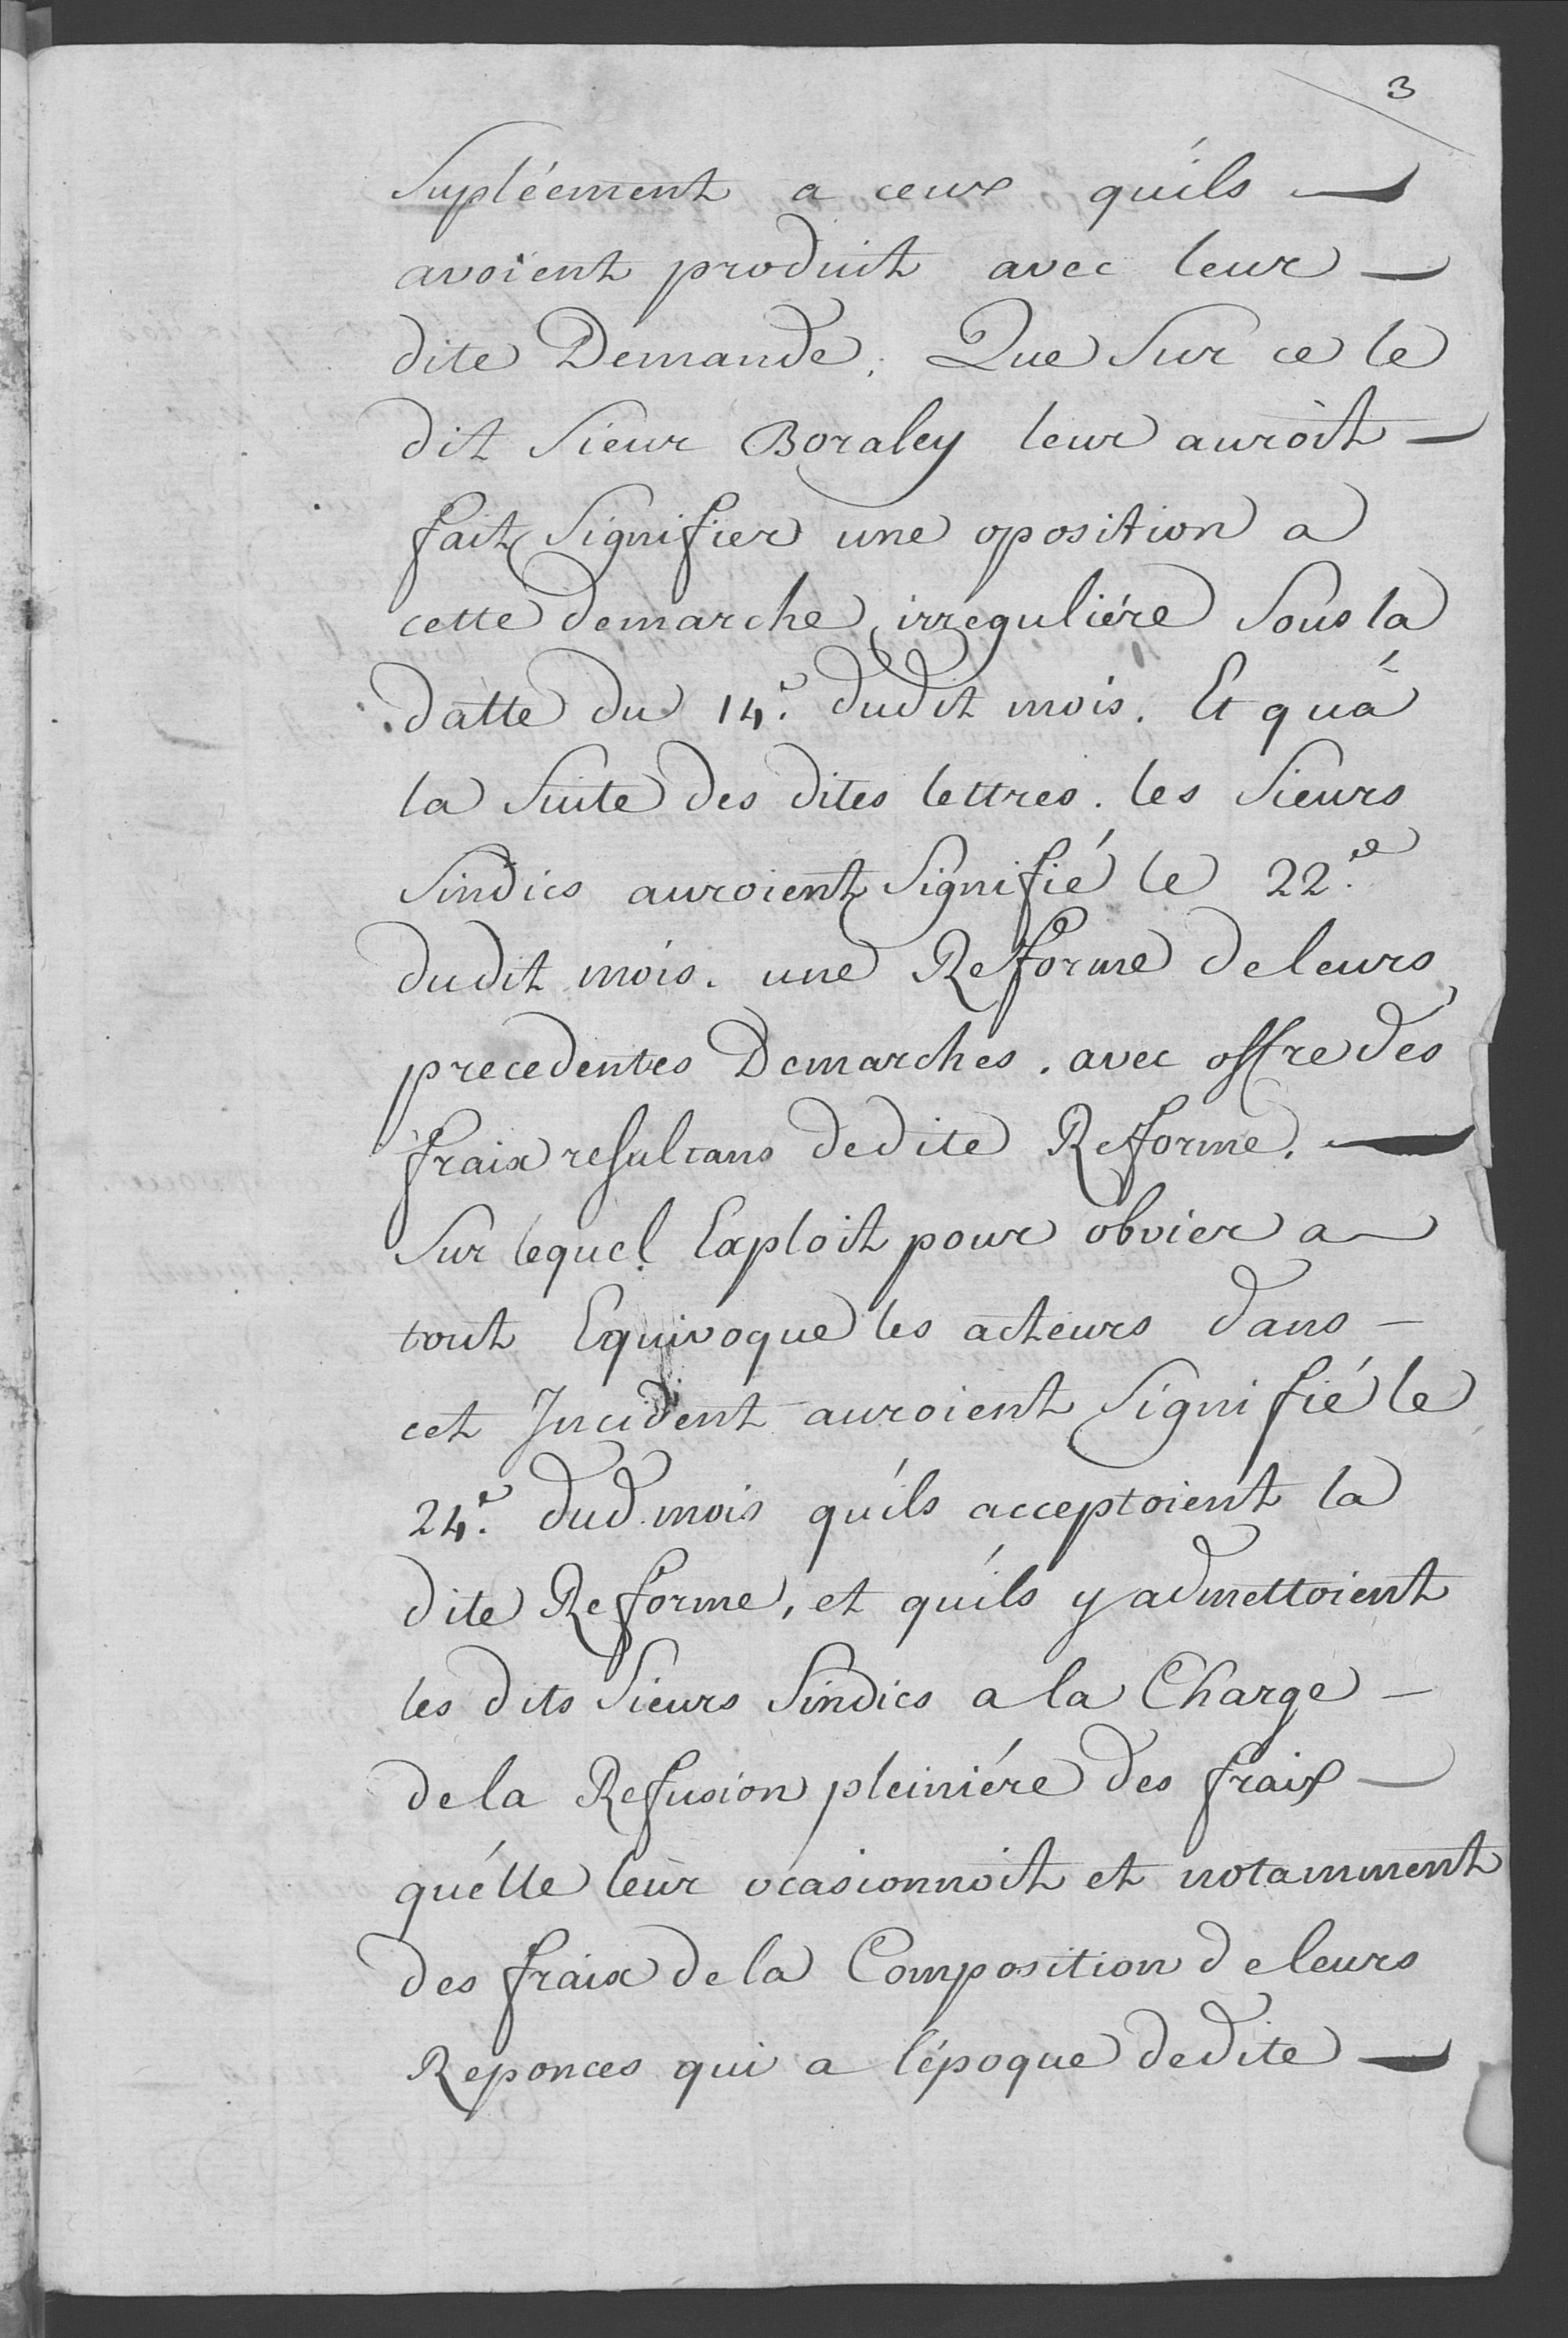 3
Supléement a ceux qu'ils —
avoient produit avec leur —
dite Demande. Que Sur ce le
dit Sieur Boraley leur auroit —
fait Signifier une oposition a
cette demarche irreguliére Sous la
datte du 14.e dudit mois. Et qu'a
la Suite des dites lettres. les Sieurs
Sindics auroient Signifié le 22.e
dudit mois. une Reforme de leurs
precedentes Demarches. avec offre des
fraix resultans dedite Reforme. —
Sur lequel Exploit pour obvier a
tout Equivoque les acteurs dans —
cet Incident auroient Signifié le
24.e dud. mois qu'ils acceptoient la
dite Reforme, et qu'ils y admettoient
les dits Sieurs Sindics a la Charge —
de la Refusion pleiniére des fraix —
qu'elle leur ocasionnoit et notamment
des fraix de la Composition de leurs
Reponces qui a l'époque dedite —